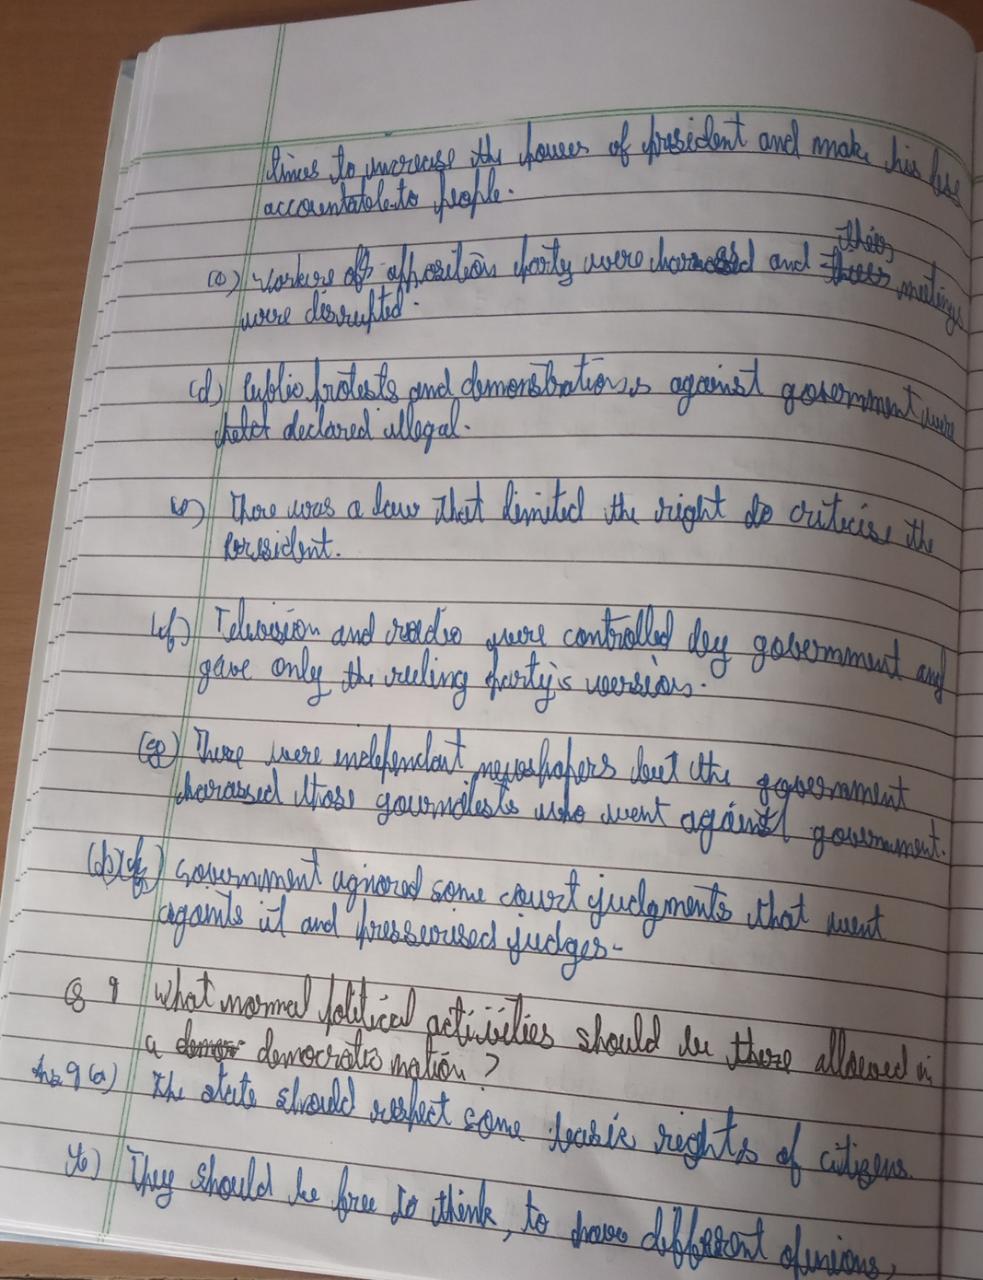 times to increase the power of president and make his less
accountable to people.
(c) Workers of opposition party were harassed and their meetings
were disrupted.
(d) Public protests and demonstrations against government were
declared illegal.
(e) There was a law that limited the right to criticise the
President.
(f) Television and radio were controlled by government and
gave only the ruling party's version.
(g) There were independent newspapers but the government
harassed those journalists who went against government.
(h) Government ignored some court judgments that went
againts it and pressurised judges.
Q 9 What normal political activities should be there allowed in
a democratic nation?
Ans 9 (a) The state should respect some basic rights of citizens.
(b) They should be free to think, to have different opinions,